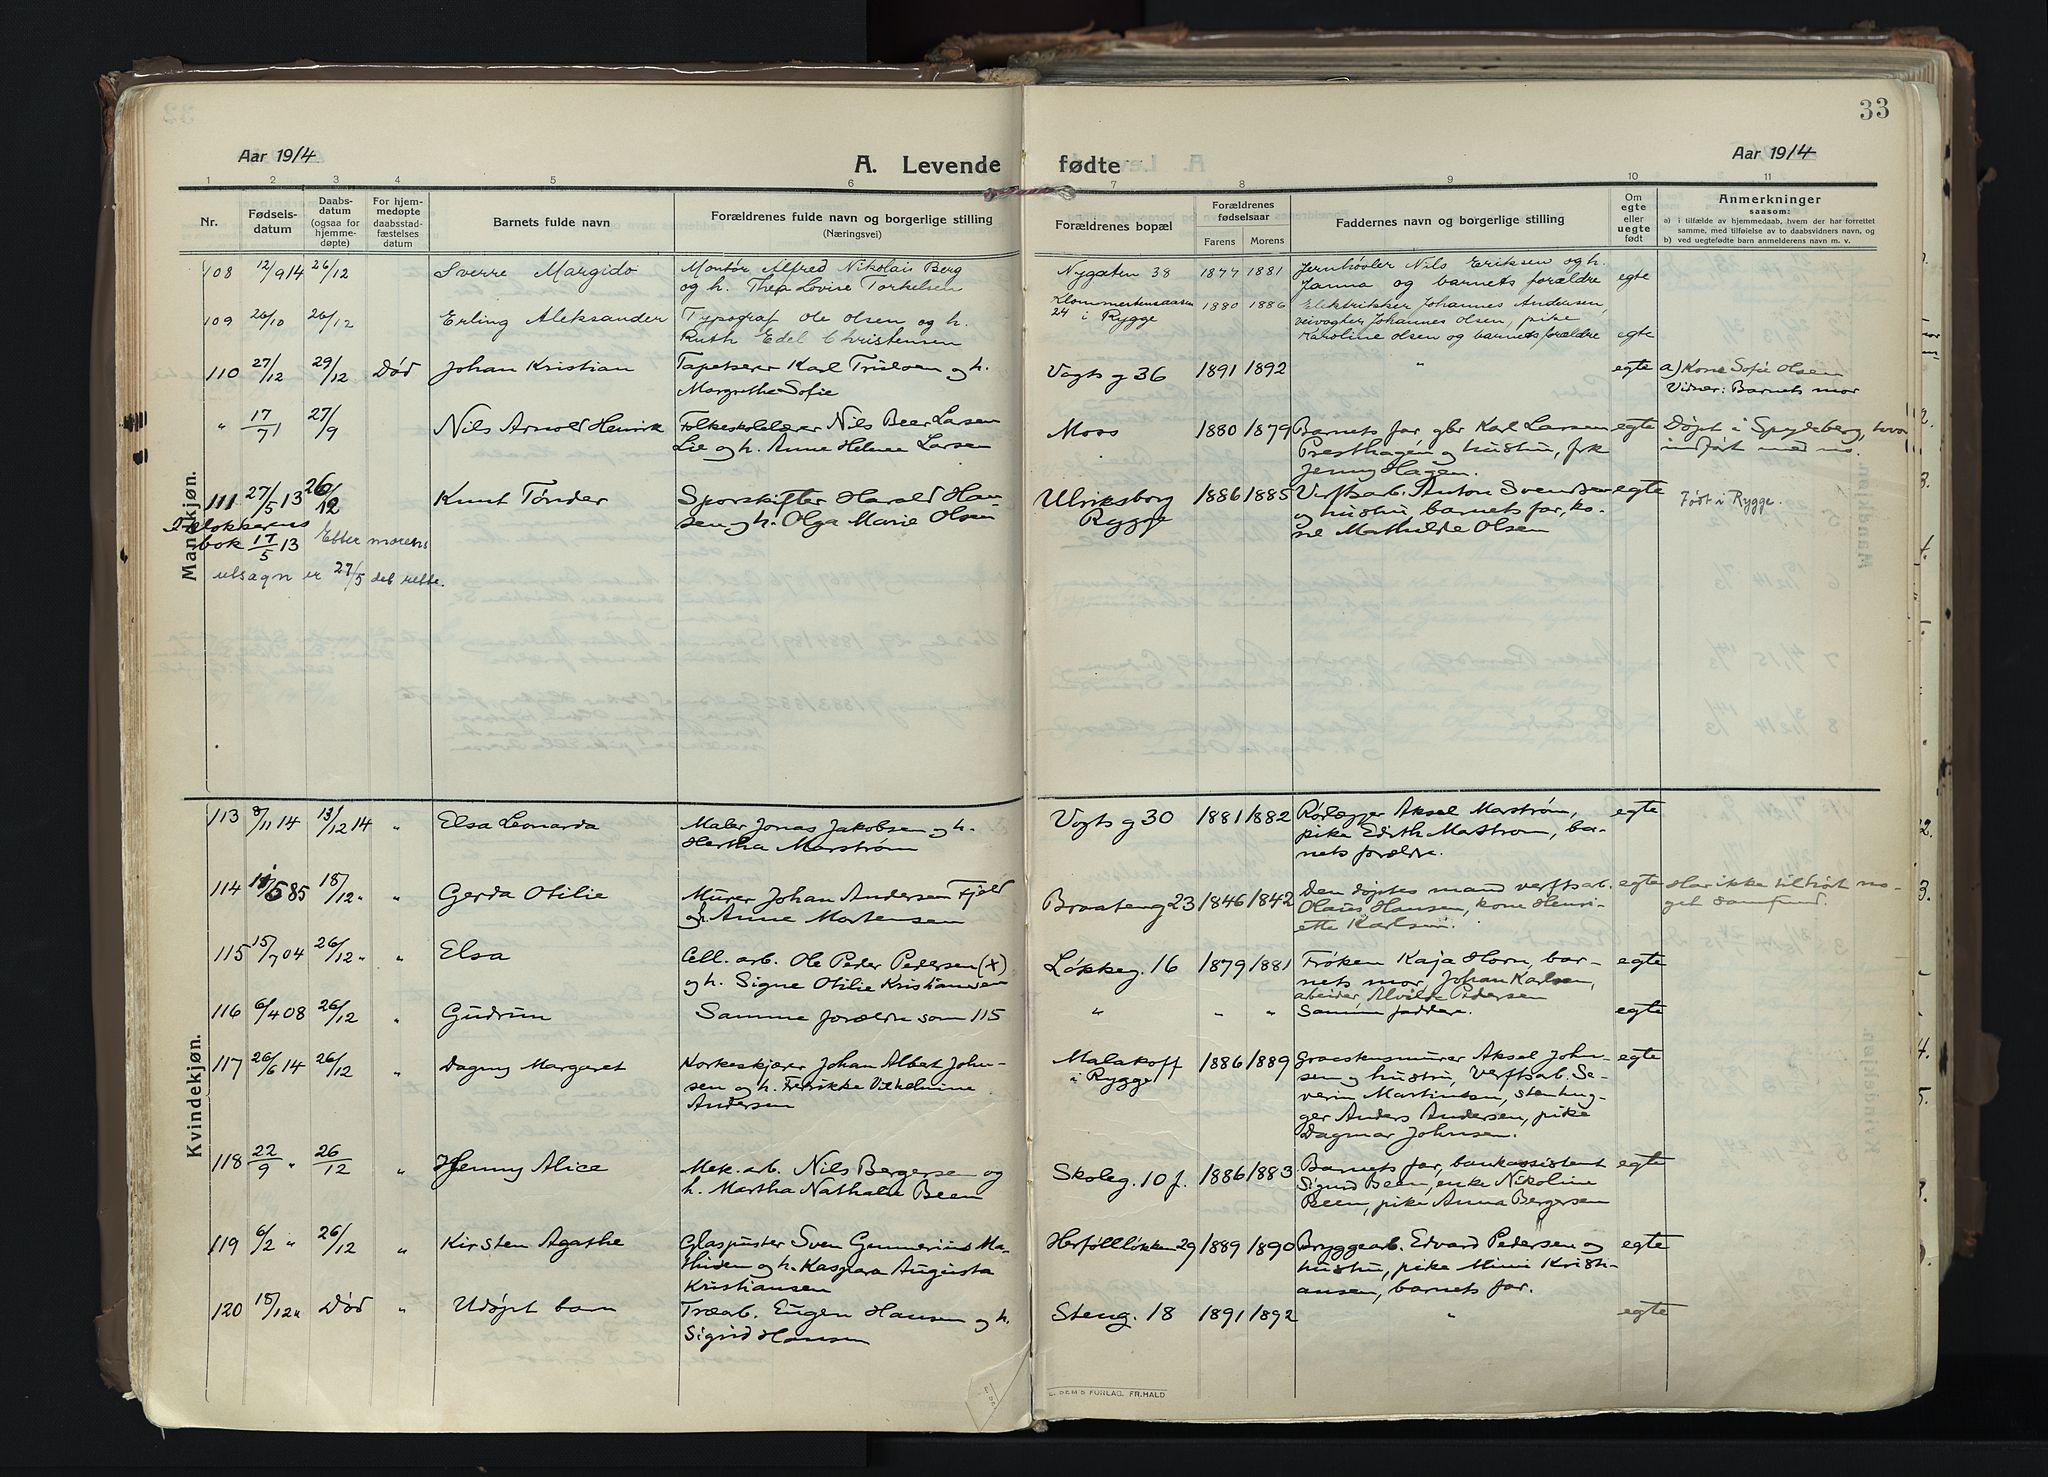 33
Aar 1914
A. Levende fødte
Aar 1914
1 2 3 4 5 6 7 8 9 10 11
Nr.
Fødsels-
datum
Daabs-
datum
(ogsaa for
hjemme-
døpte)
For hjem-
medøpte
daabsstad-
fæstelses
datum
Barnets fulde navn
Forældrenes fulde navn og borgerlige stilling
(Næringsvei)
Forældrenes bopæl
Forældrenes
fødselsaar
Farens
Morens
Faddernes navn og borgerlige stilling
Om
egte
eller
uegte
født
Anmerkninger
saasom:
a) i tilfælde av hjemmedaab, hvem der har forrettet
samme, med tilføielse av to daabsvidners navn, og
b) ved uegtefødte barn anmelderens navn m. v.
Mandkjøn.
108 12/9 14 26/12 Sverre Margido Montør Alfred Nikolais Berg Nygaten 38 1877 1881 Jernhøvler Nils Eriksen og h. egte
og h. Thea Lovise Torkelsen Janna og barnets forældre
109 26/10 26/12 Erling Aleksander Typograf Ole Olsen og h. 24 i Rygge 1880 1886 Elektrikker Johannes Andersen,
veivogter Johannes Olsen, pike
Ruth Edel Christensen Karoline Olsen og barnets forældre egte
110 27/12 29/12 Død Johan Kristian Tapetserer Karl og h. Vogts g 36 1891 1892 " egte a) Kone Sofie Olsen
Margrethe Sofie Vidner: Barnets mor
" 17/7 27/9 Nils Arnold Henrik Folkeskolelærer Nils Beer Larsen Moss 1880 1879 Barnets far, gbr Karl Larsen egte Døpt i Spydeberg, hvor
Lie og h. Anne Helene Larsen Presthagen og hustru, frk indført med no.
Jenny Hagen.
111 27/5 13 26/12 Knut Tønder Sporskifter Harald Han- Ulriksborg 1886 1885 Verftsarb. Anton Svendsen egte Født i Rygge.
sen og h. Olga Marie Olsen Rygge og hustru, barnets far, ko-
ne Mathilde Olsen
bok 17/5 13 Efter morens
utsagn er 27/5 det rette.
Kvindekjøn.
113 8/11 14 13/12 14 " Elsa Leonarda Maler Jonas Jakobsen og h. Vogts g 30 1881 1882 Rørlægger Aksel Marstrøm, egte
Hertha Marstrøm pike Edith Mastrom, bar-
nets forældre.
114 5 85 18/12 " " Gerda Otilie Murer Johan Andersen Fjeld Braateng 23 1846 1842 Den døptes mand verftsarb. egte Har ikke tilhørt no-
og h. Anne Mortensen Olaus Hansen, kone Henri- get samfund.
ette Karlsen.
115 15/7 04 26/12 " " Elsa Cell. arb. Ole Peder Pedersen (+) Løkkeg. 16 1879 1881 Frøken Kaja Horn, bar- egte
og h. Signe Otilie Kristiansen nets mor, Johan Karlsen,
arbeider, Alvilde Pedersen
116 6/4 08 26/12 " Gudrun Samme forældre som 115 " " " Samme faddere. egte
117 26/6 14 26/12 " Dagny Margaret Korkeskjærer Johan Albert John- Malakoff 1886 1889 Graastensmurer Aksel John- egte
sen og h. Fredrikke Vilhelmine i Rygge sen og hustru, Verftsarb. Se-
Andersen verin Martinsen, stenhug-
ger Anders Andersen, pike
Dagmar Johnsen.
118 22/9 " 26/12 " Jenny Alice Mek. arb. Nils Bergersen og Skoleg. 10 f. 1886 1883 Barnets far, bankassistent egte
h. Martha Nathalie Been Sigurd Been, enke Nikoline
Been, pike Anna Bergersen
119 6/2 " 26/12 " Kirsten Agathe Glaspuster Sven Gunnerius Ma- Herføllløkken 29 1889 1890 Bryggearb. Edvard Pedersen og egte
thisen og h. Kaspara Augusta hustru, pike Mimi Kristi-
Kristiansen ansen, barnets far.
120 18/12 " Død " Udøpt barn Træarb. Eugen Hansen og h. Steng. 18 1891 1892 " egte
Sigrid Hansen
FORLAG. FR.HALD